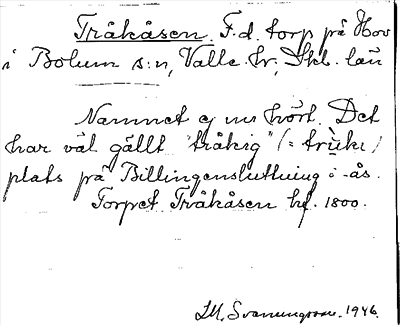 Tråkåsen. F.d. torp på Hov
i Bolum s:n, Valle hr, Skb. län
Namnet ej nu hört. Det
har väl gällt "tråkig" (=
plats på Billingensluttning i -ås.
Torpet Tråkåsen bf. 1800.
1946.